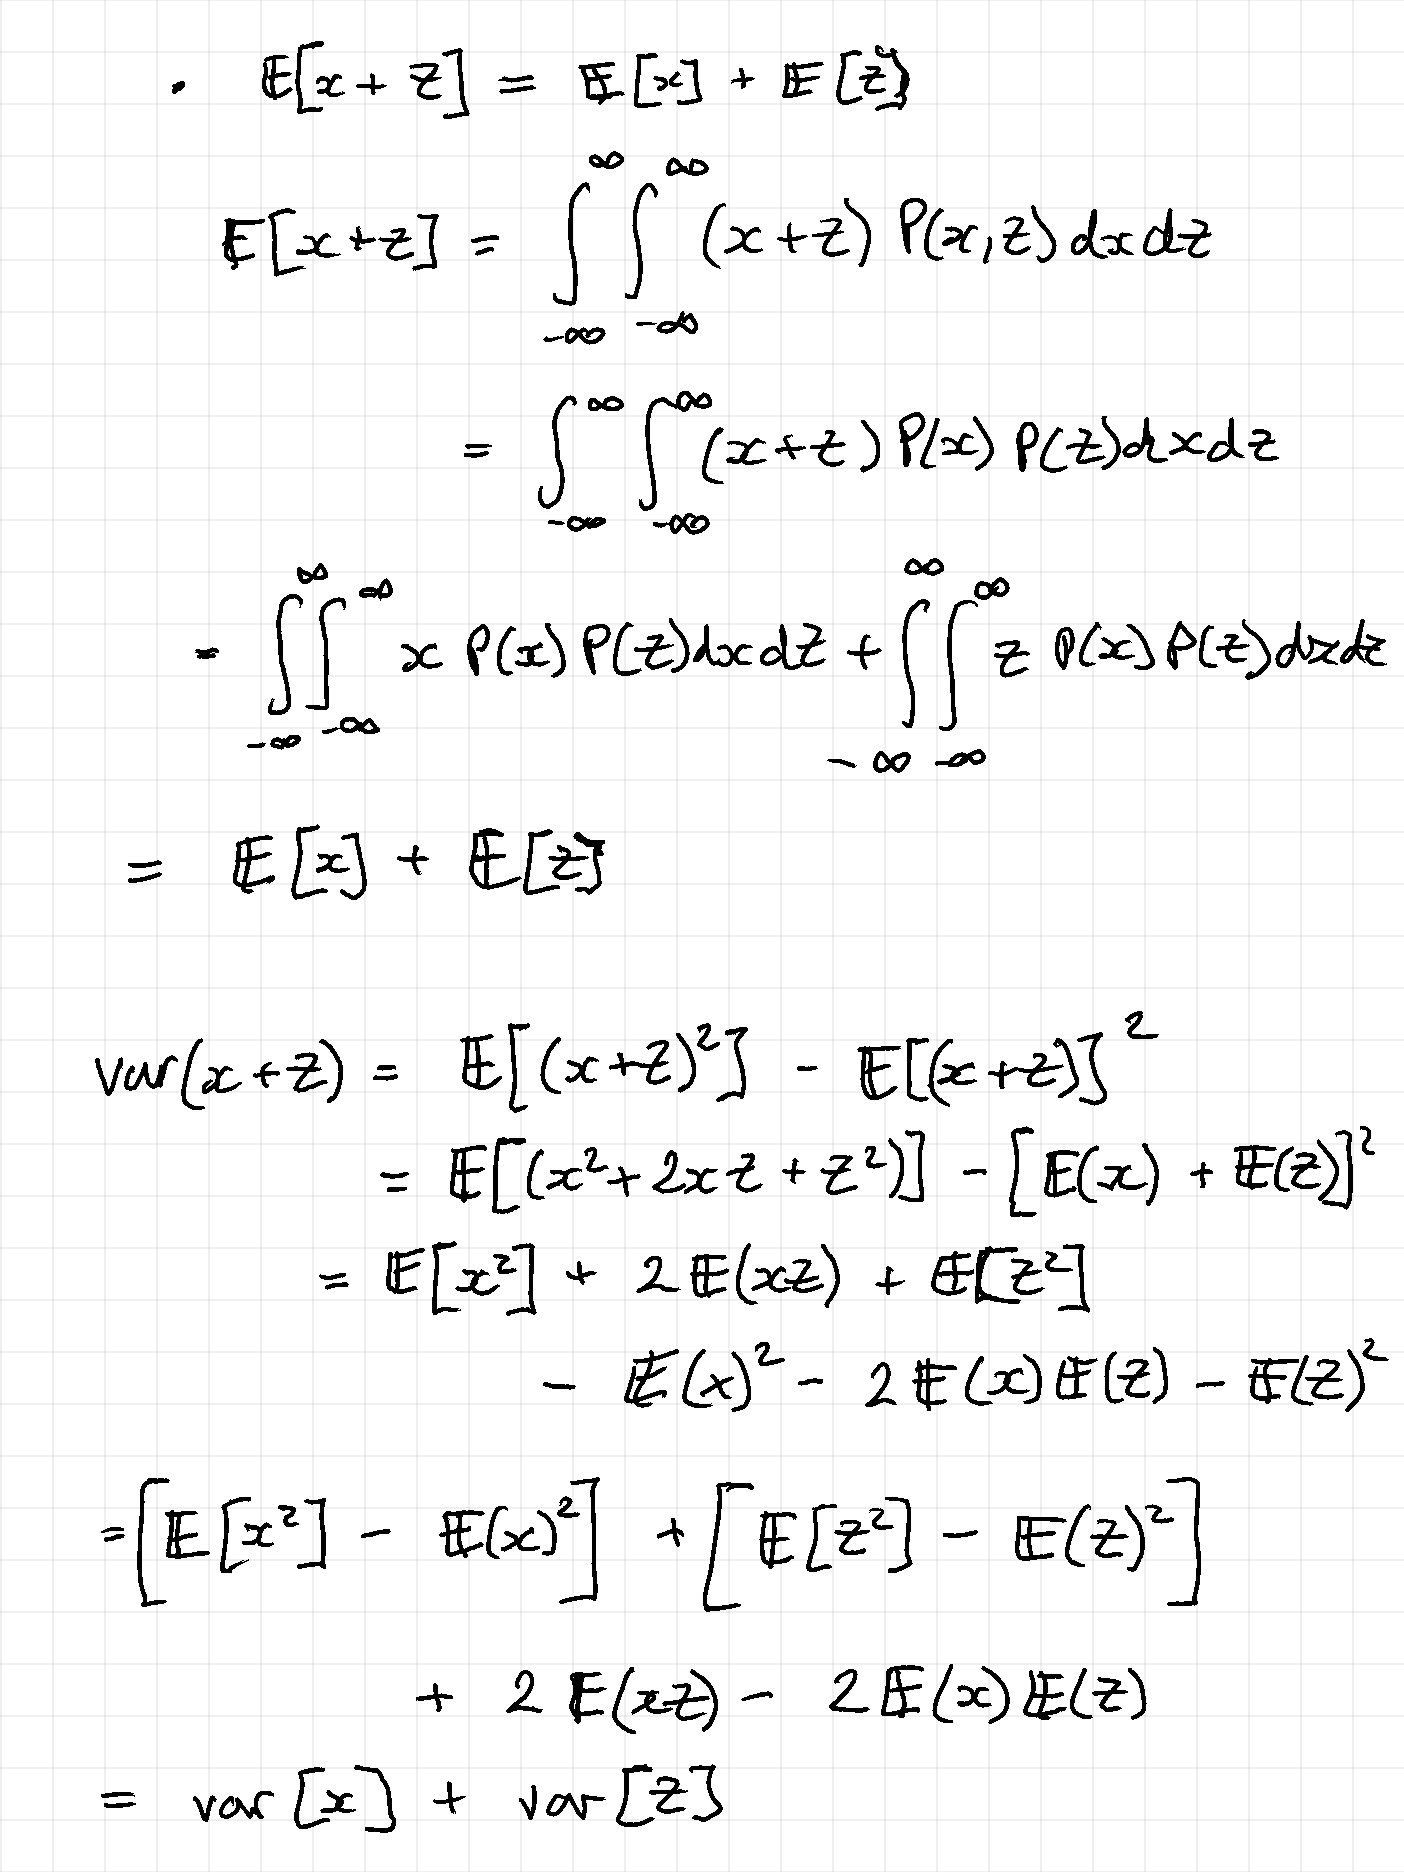 · 𝔼[x + z] = 𝔼[x] + 𝔼[z]
𝔼[x+z] = ∫_{-∞}^{∞} ∫_{-∞}^{∞} (x+z) P(x,z) dx dz
= ∫_{-∞}^{∞} ∫_{-∞}^{∞} (x+z) P(x) P(z) dx dz
= ∫_{-∞}^{∞} ∫_{-∞}^{∞} x P(x) P(z) dx dz + ∫_{-∞}^{∞} ∫_{-∞}^{∞} z P(x) P(z) dx dz
= 𝔼[x] + 𝔼[z]
var(x+z) = 𝔼[(x+z)²] - 𝔼[(x+z)]²
= 𝔼[(x² + 2xz + z²)] - [𝔼(x) + 𝔼(z)]²
= 𝔼[x²] + 2𝔼(xz) + 𝔼[z²]
- 𝔼(x)² - 2𝔼(x)𝔼(z) - 𝔼(z)²
= [𝔼[x²] - 𝔼(x)²] + [𝔼[z²] - 𝔼(z)²]
+ 2𝔼(xz) - 2𝔼(x)𝔼(z)
= var[x] + var[z]